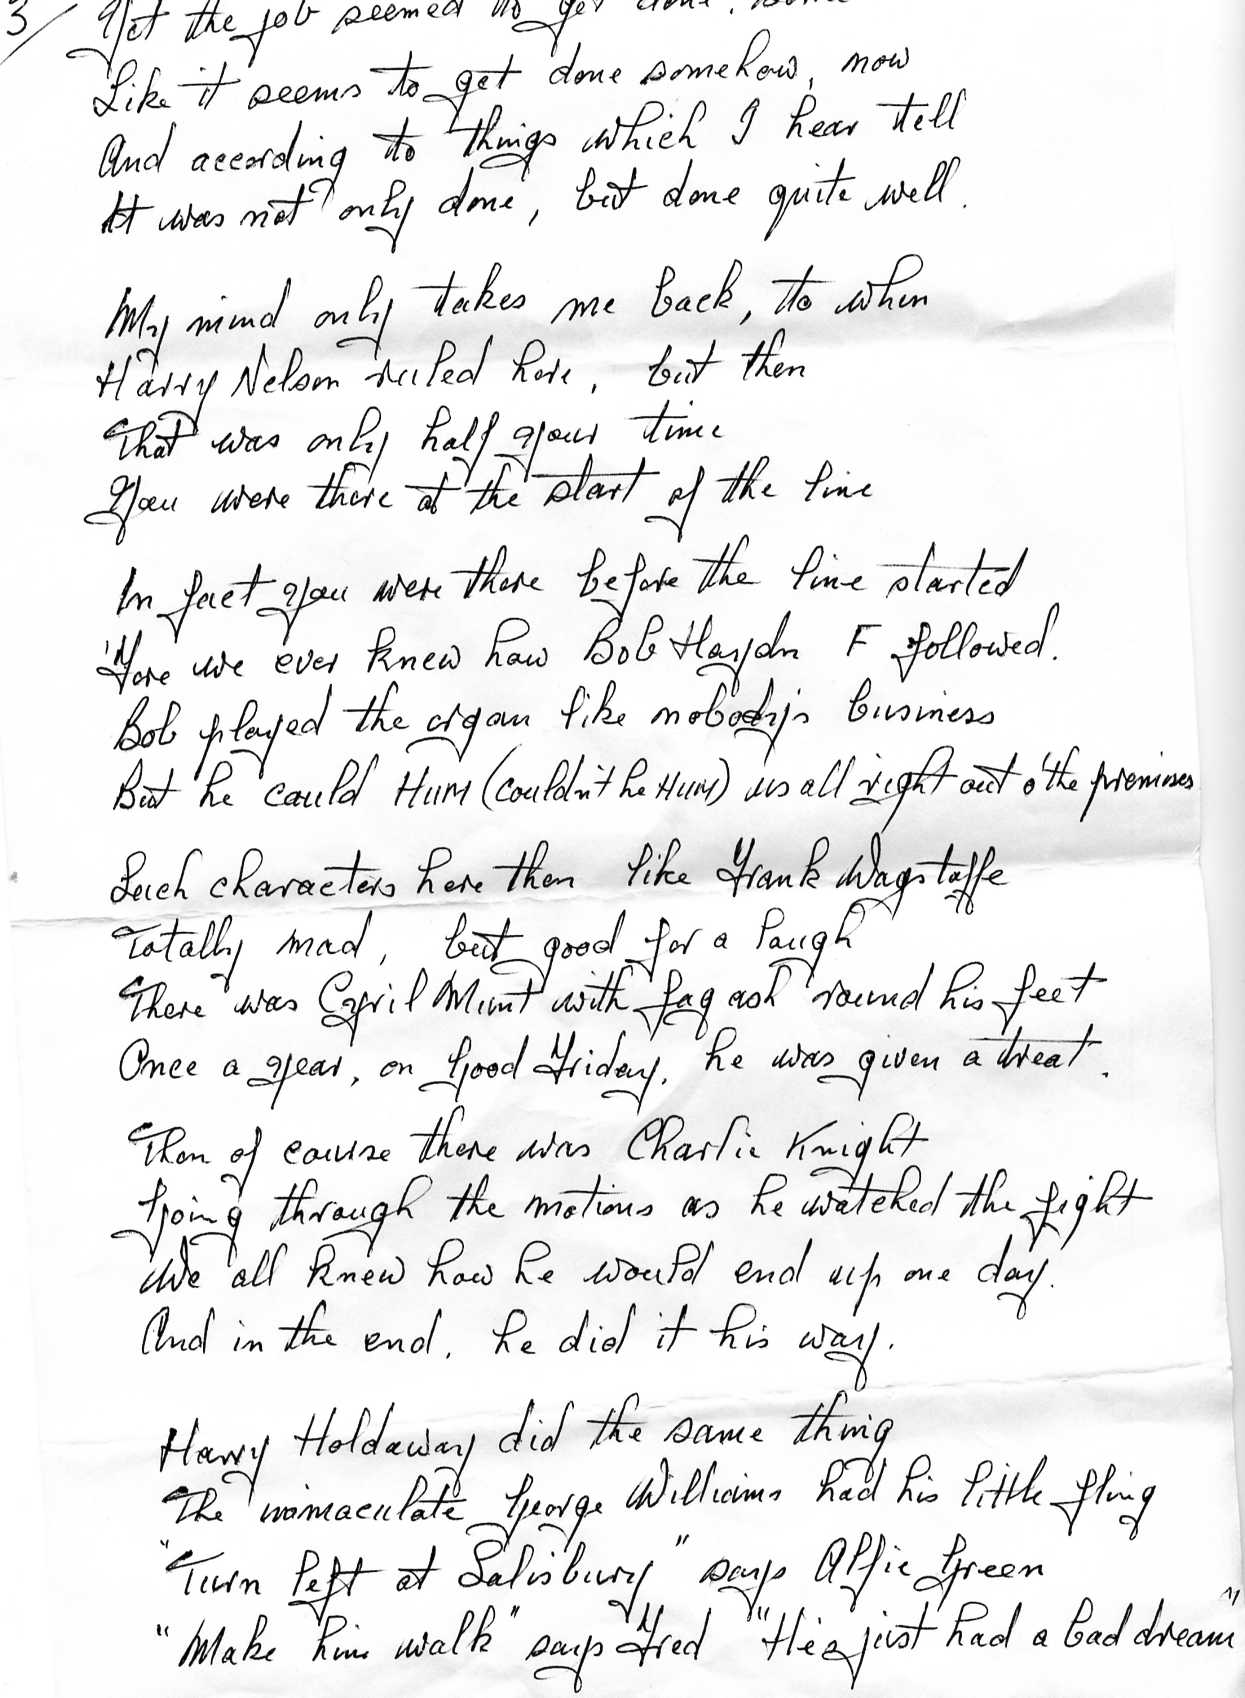 3/ Yet the job seemed to get done, some
Like it seems to get done somehow, now
And according to things which I hear tell
It was not only done, but done quite well.
My mind only takes me back, to when
Harry Nelson ruled here, but then
That was only half your time
You were there at the start of the line
In fact you were there before the line started
'Fore we ever knew how Bob Haydn F followed.
Bob played the organ like nobody's business
But he could HUM (couldn't he HUM) us all right out o'the premises
Such characters here then like Frank Wagstaffe
Totally mad, but good for a laugh
There was Cyril Munt with fag ash 'round his feet
Once a year, on Good Friday, he was given a treat.
Then of course there was Charlie Knight
Going through the motions as he watched the fight
We all knew how he would end up one day.
And in the end, he did it his way.
Harry Holdaway did the same thing
The immaculate George Williams had his little fling
"Turn left at Salisbury" says Alfie Green
"Make him walk" says Fred "He's just had a bad dream"